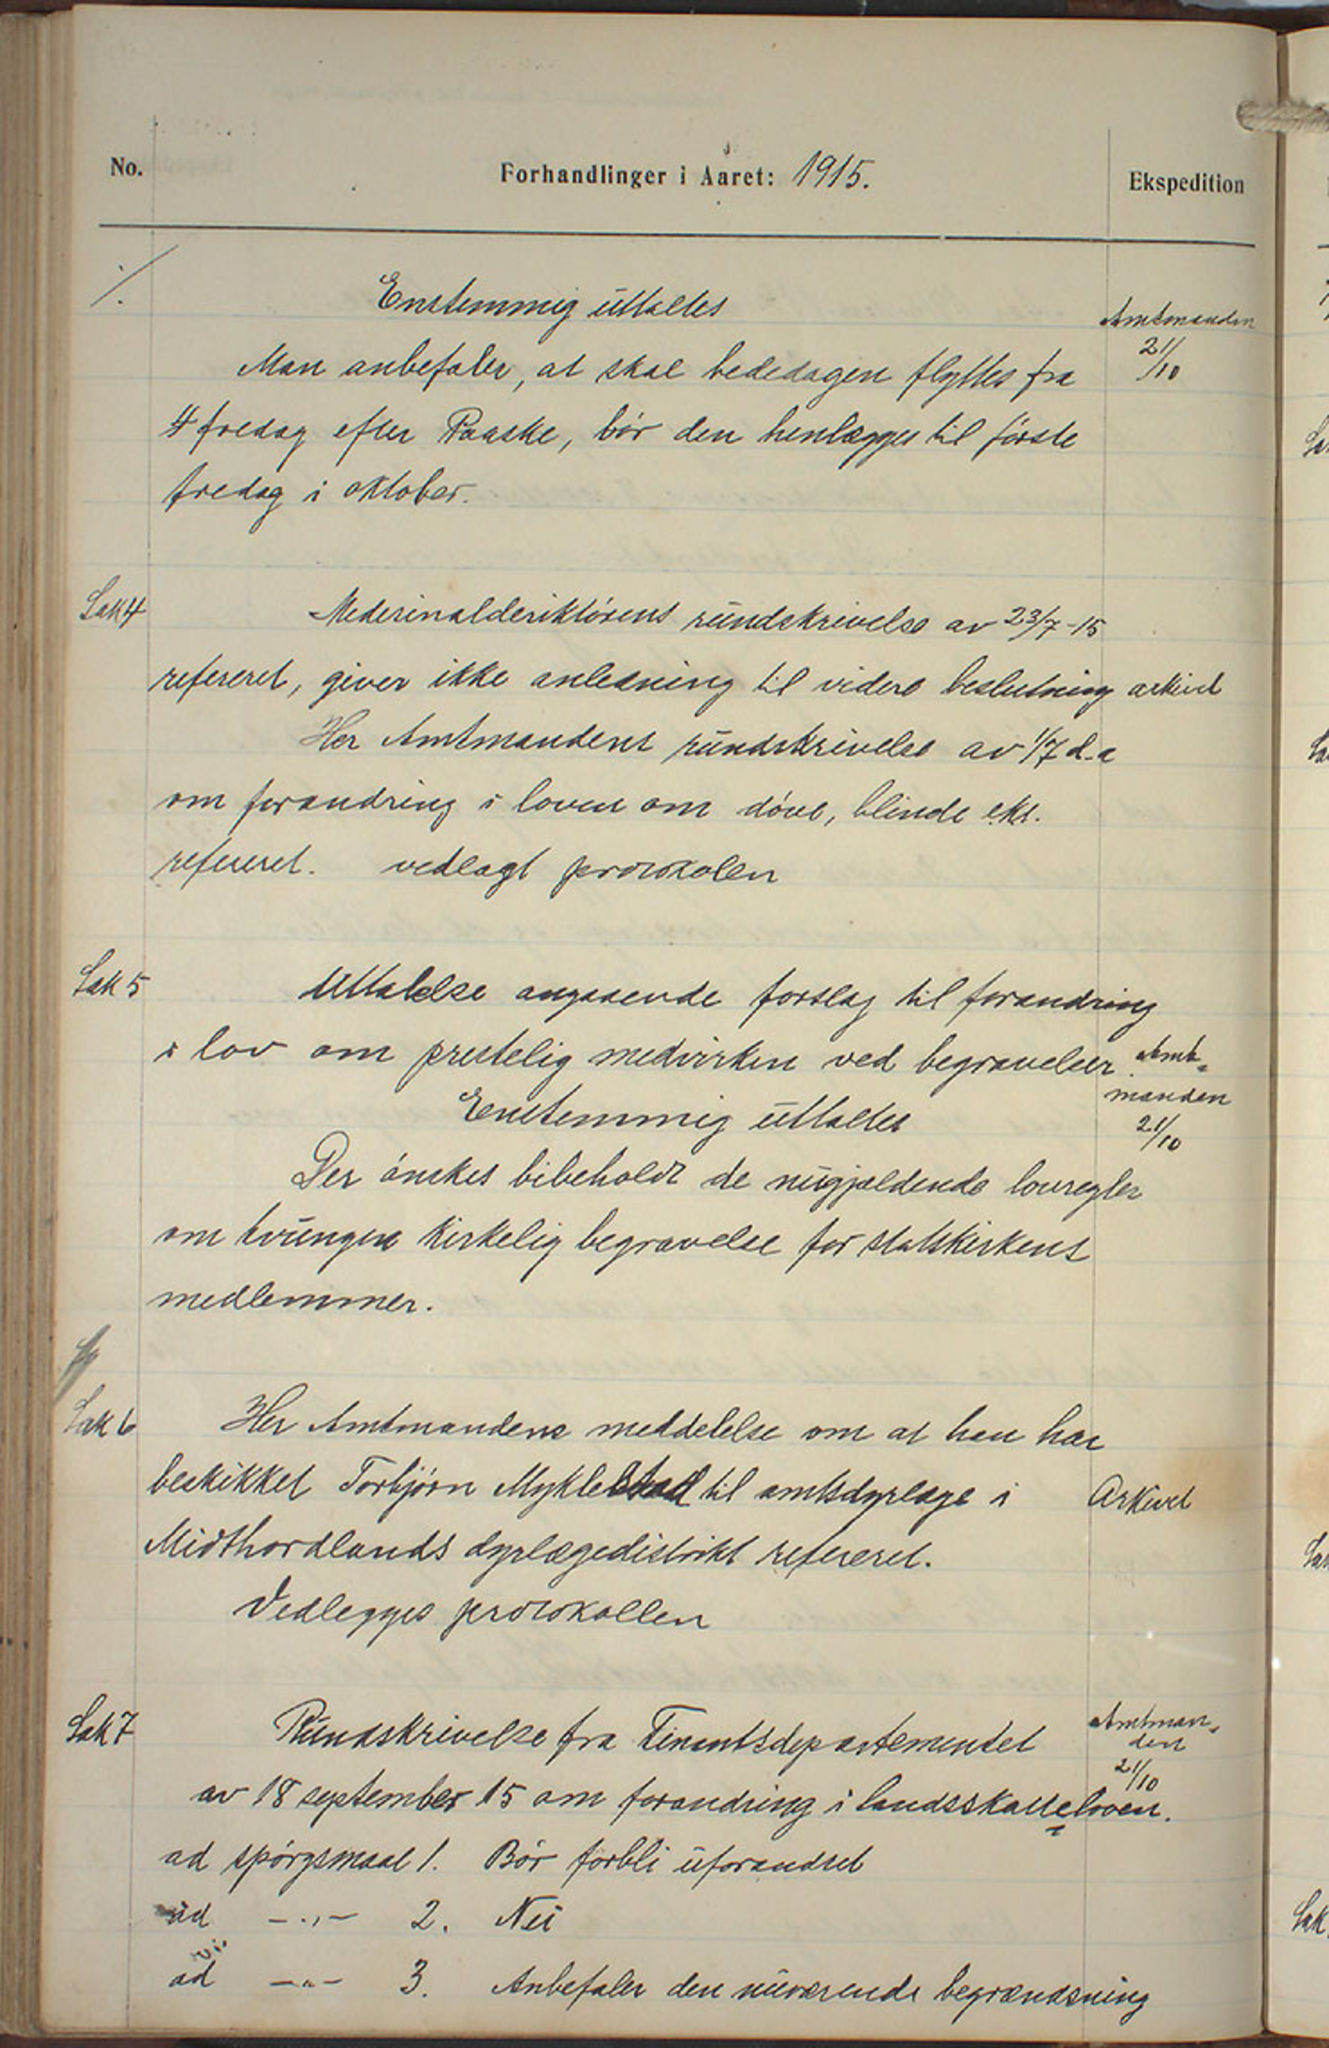 No.
Forhandlinger i Aaret: 1915.
Ekspedition
./.
Enstemmig uttaltes
Amtmanden
21/10
Man anbefaler, at skal bededagen flyttes fra
4 fredag efter Paaske, bør den henlægges til første
fredag i oktober.
Sak 4
Mederinalderiktørens rundskrivelse av 23/7-15
refereret, giver ikke anledning til videre beslutning
arkivet
Her Amtmandens rundskrivelse av 1/7 d.a
om forandring i loven om døve, blinde ekt.
refereret. vedlagt protokolen
Sak 5
Uttalelse angaaende forslag til forandring
i lov om prestelig medvirken ved begravelser.
Amt-
manden
21/10
Enstemmig uttaltes
Der ønskes bibeholdt de nugjældende lovregler
om tvungen kirkelig begravelse for statskirkens
medlemmer.
Sak 6
Her Amtmandens meddelelse om at han har
beskikket Torbjørn Myklestad til amtsdyrlæge i
Arkivet
Midthordlands dyrlægedistrikt refereret.
Vedlegges protokollen
Sak 7
Rundskrivelse fra Finantsdepartementet
Amtman-
den
21/10
av 18 september 15 om forandring i landsskatteloven.
ad spørgsmaal 1. Bør forbli uforandret
ad -„- 2. Nei
ad -„- 3. Anbefaler den nuværende begrændsning